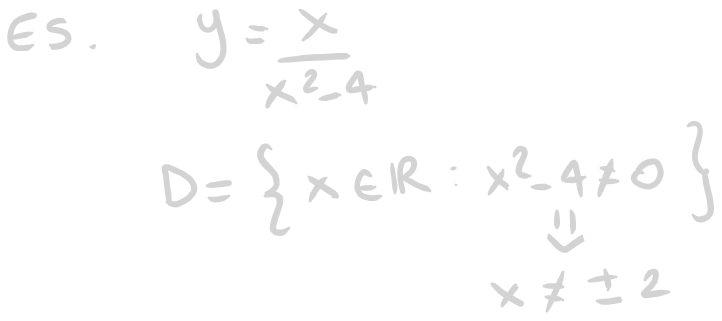 ES. y = x / x² - 4
D = { x ∈ ℝ : x² - 4 ≠ 0 }
⇓
x ≠ ± 2